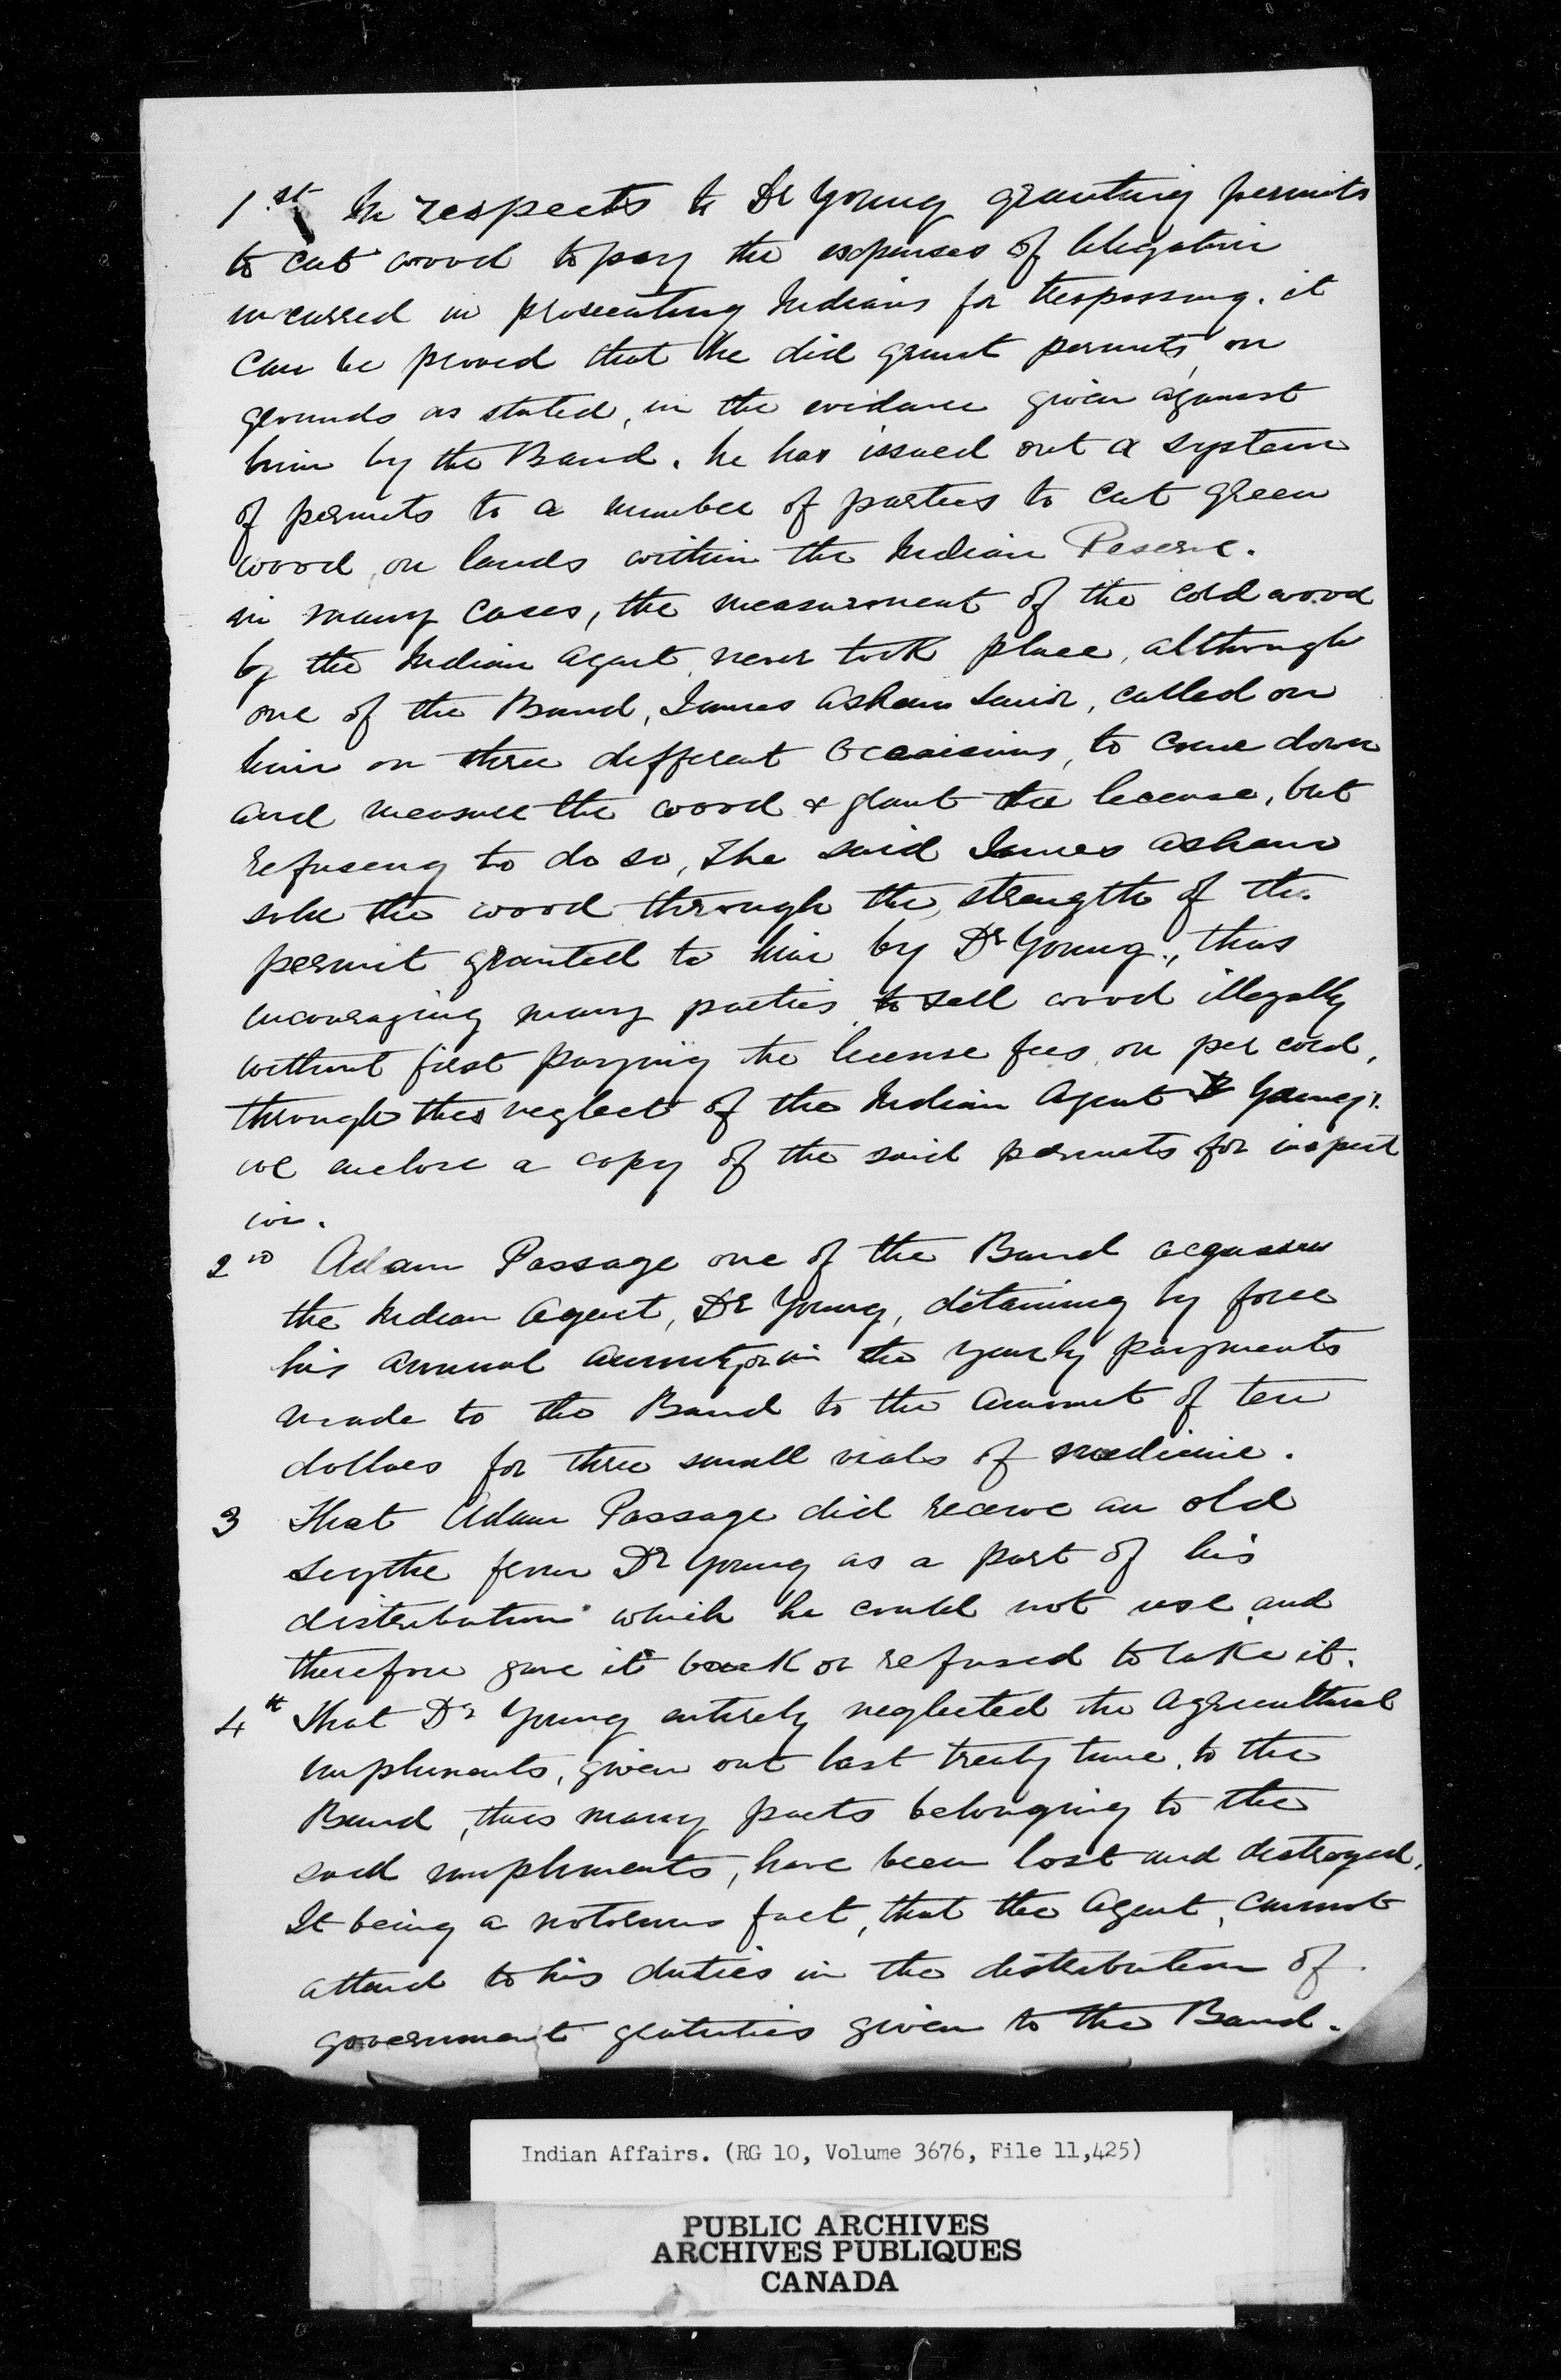 1st In respects to Dr Young granting permits
to cut wood to pay the expenses of litigation
incurred in prosecuting Indians for trespassing. it
can be proved that he did grant permits, on
grounds as stated, in the evidence given against
him by the Band. he has issued out a system
of permits to a number of parties to cut green
wood, on lands within the Indian Reserve.
in many cases, the measurement of the cord wood
by the Indian Agent, never took place, although
one of the Band, James Asham Senior, called on
him on three different occasions, to come down
and measure the wood & grant the license, but
refuseng to do so, the said James Asham
sold the wood through the strength of the
permit granted to him by Dr Young., thus
incouraging many parties to sell wood illegally
without first paying the license fees, on per cord,
through the neglect of the Indian Agent Dr Young.
we enclose a copy of the said permits for inspect
ion.
2nd Adam Passage one of the Band
the Indian Agent, Dr Young, detaining by force
his annual in the yearly payments
made to the Band to the amount of ten
dollars for three small vials of medicine.
3 That Adam Passage did receive an old
Scythe from Dr Young as a part of his
distribution which he could not use, and
therefore gave it back or refused to take it.
4th That Dr Young entirely neglected the Agricultural
implements, given out last treaty time, to the
Band, thus many parts belonging to the
said implements, have been lost and destroyed,
It being a notorious fact, that the Agent, cannot
attend to his duties in the distribution of
government gratuties given to the Band.
Indian Affairs. (RG 10, Volume 3676, File 11,425)
PUBLIC ARCHIVES
ARCHIVES PUBLIQUES
CANADA